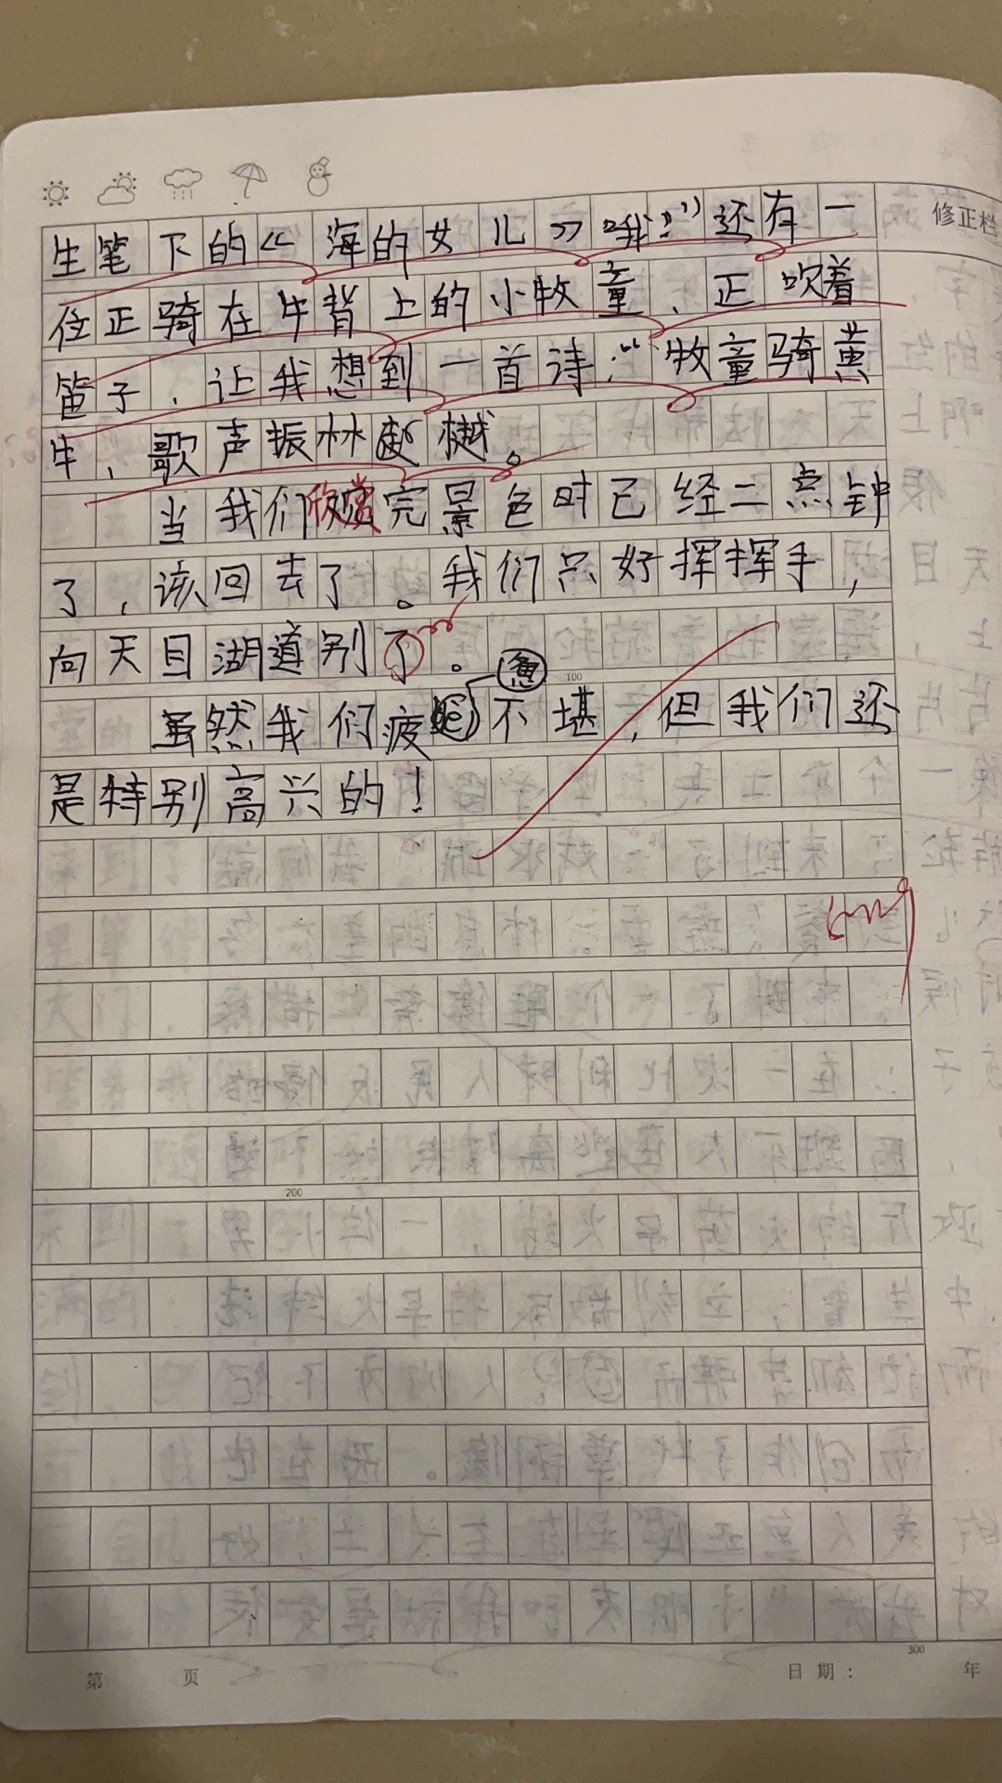 修正栏
生笔下的《海的女儿》哦!”还有一
位正骑在牛背上的小牧童,正吹着
笛子,让我想到一首诗:“牧童骑黄
牛,歌声振林越樾。
当我们欣赏完景色时已经二点钟
了,该回去了。我们只好挥挥手,
向天目湖道别了。
100
惫
虽然我们疲不堪,但我们还
是特别高兴的!
200
300
第 页
日期: 年